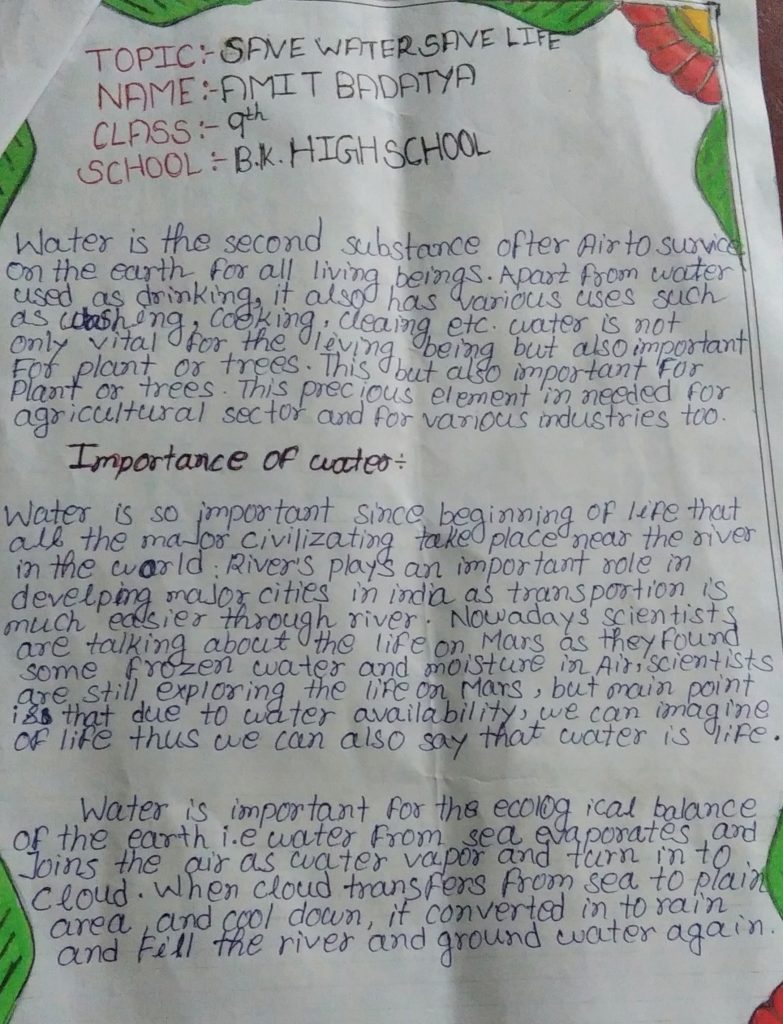 TOPIC:- SAVE WATER SAVE LIFE
NAME:- AMIT BADATYA
CLASS:- 9th
SCHOOL:- B.K. HIGH SCHOOL
Water is the second substance after Air to survice
on the earth for all living beings. Apart from water
used as drinking, it also has various uses such
as washing, cooking, cleaing etc. water is not
only vital for the leving being but also important
For plant or trees. This but also important For
Plant or trees. This precious element in needed for
agricultural sector and for various industries too.
Importance of water:-
Water is so important since beginning of life that
all the major civilizating take place near the river
in the world. River's plays an important role in
develping major cities in india as transportion is
much easier through river. Nowadays scientists
are talking about the life on Mars as they found
some frozen water and moisture in Air, scientists
are still exploring the life on Mars, but main point
is that due to water availability, we can imagine
of life thus we can also say that water is life.
Water is important for the ecolog ical balance
of the earth i.e water from sea evaporates and
Joins the air as water vapor and turn in to
cloud. When cloud transfers from sea to plain
area, and cool down, it converted in to rain
and fill the river and ground water again.